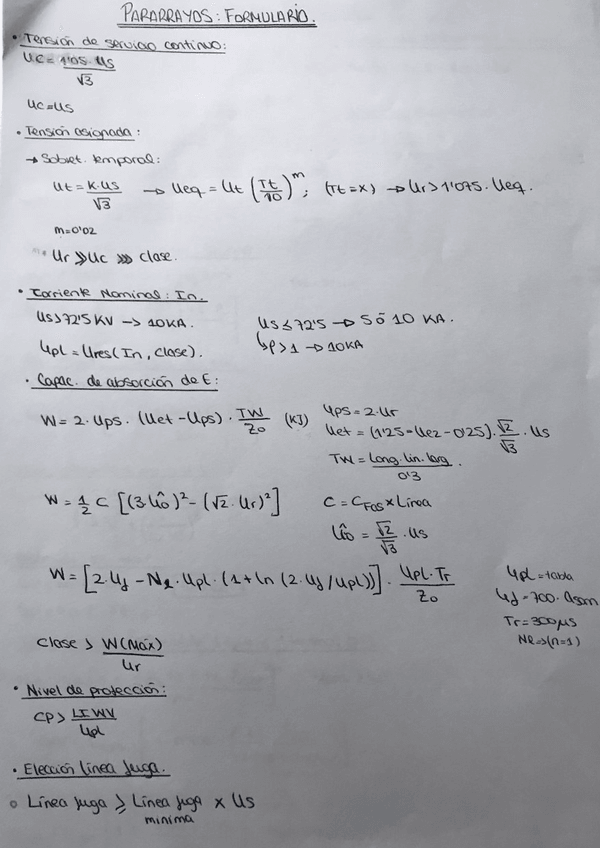 PARARRAYOS: FORMULARIO.
• Tensión de servicio continuo:
Uc = 1'05·Us/√3
Uc=Us
• Tensión asignada:
→ Sobret. temporal:
Ut = K·Us/√3 → Ueq = Ut (Tt/10)^m; (Tt=x) → Ur>1'075·Ueq.
m=0'02
Ur ≫Uc ⋙ clase.
• Corriente Nominal: In.
Us>72'5KV → 10KA. Us≤72'5 → 5 ó 10 KA.
Upl = Ures(In, clase). ↳P>1 → 10KA
• Capac. de absorción de E:
W = 2·Ups·(Uet-Ups)·TW/Zo (KJ) Ups=2·Ur
Uet = (1'25·Ue2-0'25)·√2/√3·Us
TW = Long.lin.larg/0'3.
W = 1/2 C [(3·Ûo)²-(√2·Ur)²] C = CFAS x Línea
Ûo = √2/√3·Us
W = [2·Uf - Nl·Upl·(1+ln(2·Uf/Upl))]·Upl·Tr/Zo Upl=tabla
Uf=700·
Tr=300µS
Nl→(n=1)
Clase > W(Máx)/Ur
• Nivel de protección:
CP> LIWV/Upl
• Elección línea fuga.
○ Línea fuga ≥ Línea fuga x Us
mínima